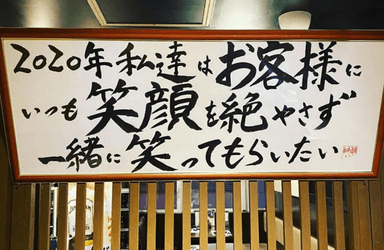 2020年私達はお客様に
いつも笑顔を絶やさず
一緒に笑ってもらいたい